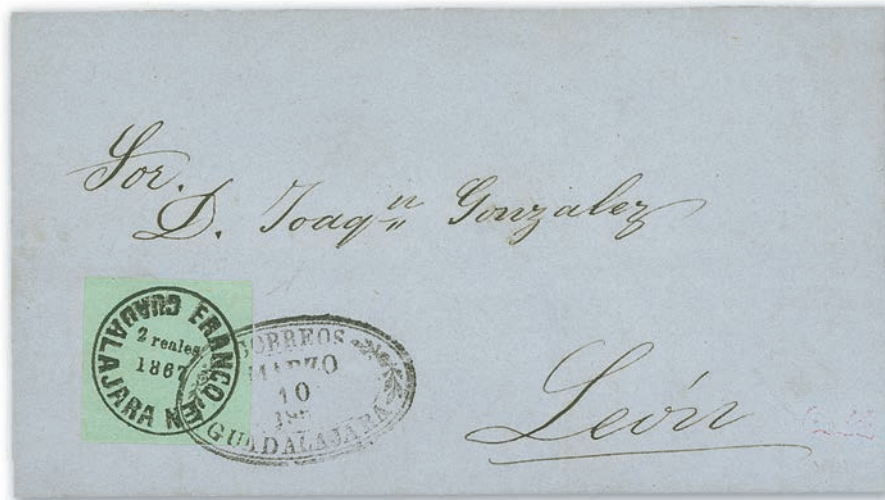 Sor.
D. Joaqn Gonzalez
León
FRANCO EN GUADALAJARA
2 reales
1867
CORREOS
MARZO
10
GUADALAJARA